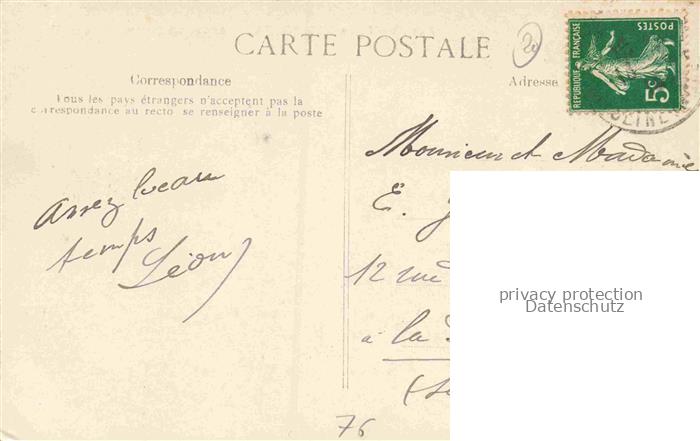 CARTE POSTALE
20
RÉPUBLIQUE FRANÇAISE
POSTES
5c
Correspondance
Tous les pays étrangers n'acceptent pas la
correspondance au recto se renseigner à la poste
Adresse
Monsieur et Madame
E.
12 rue
à la
assez beau
temps
Léon
76
privacy protection
Datenschutz